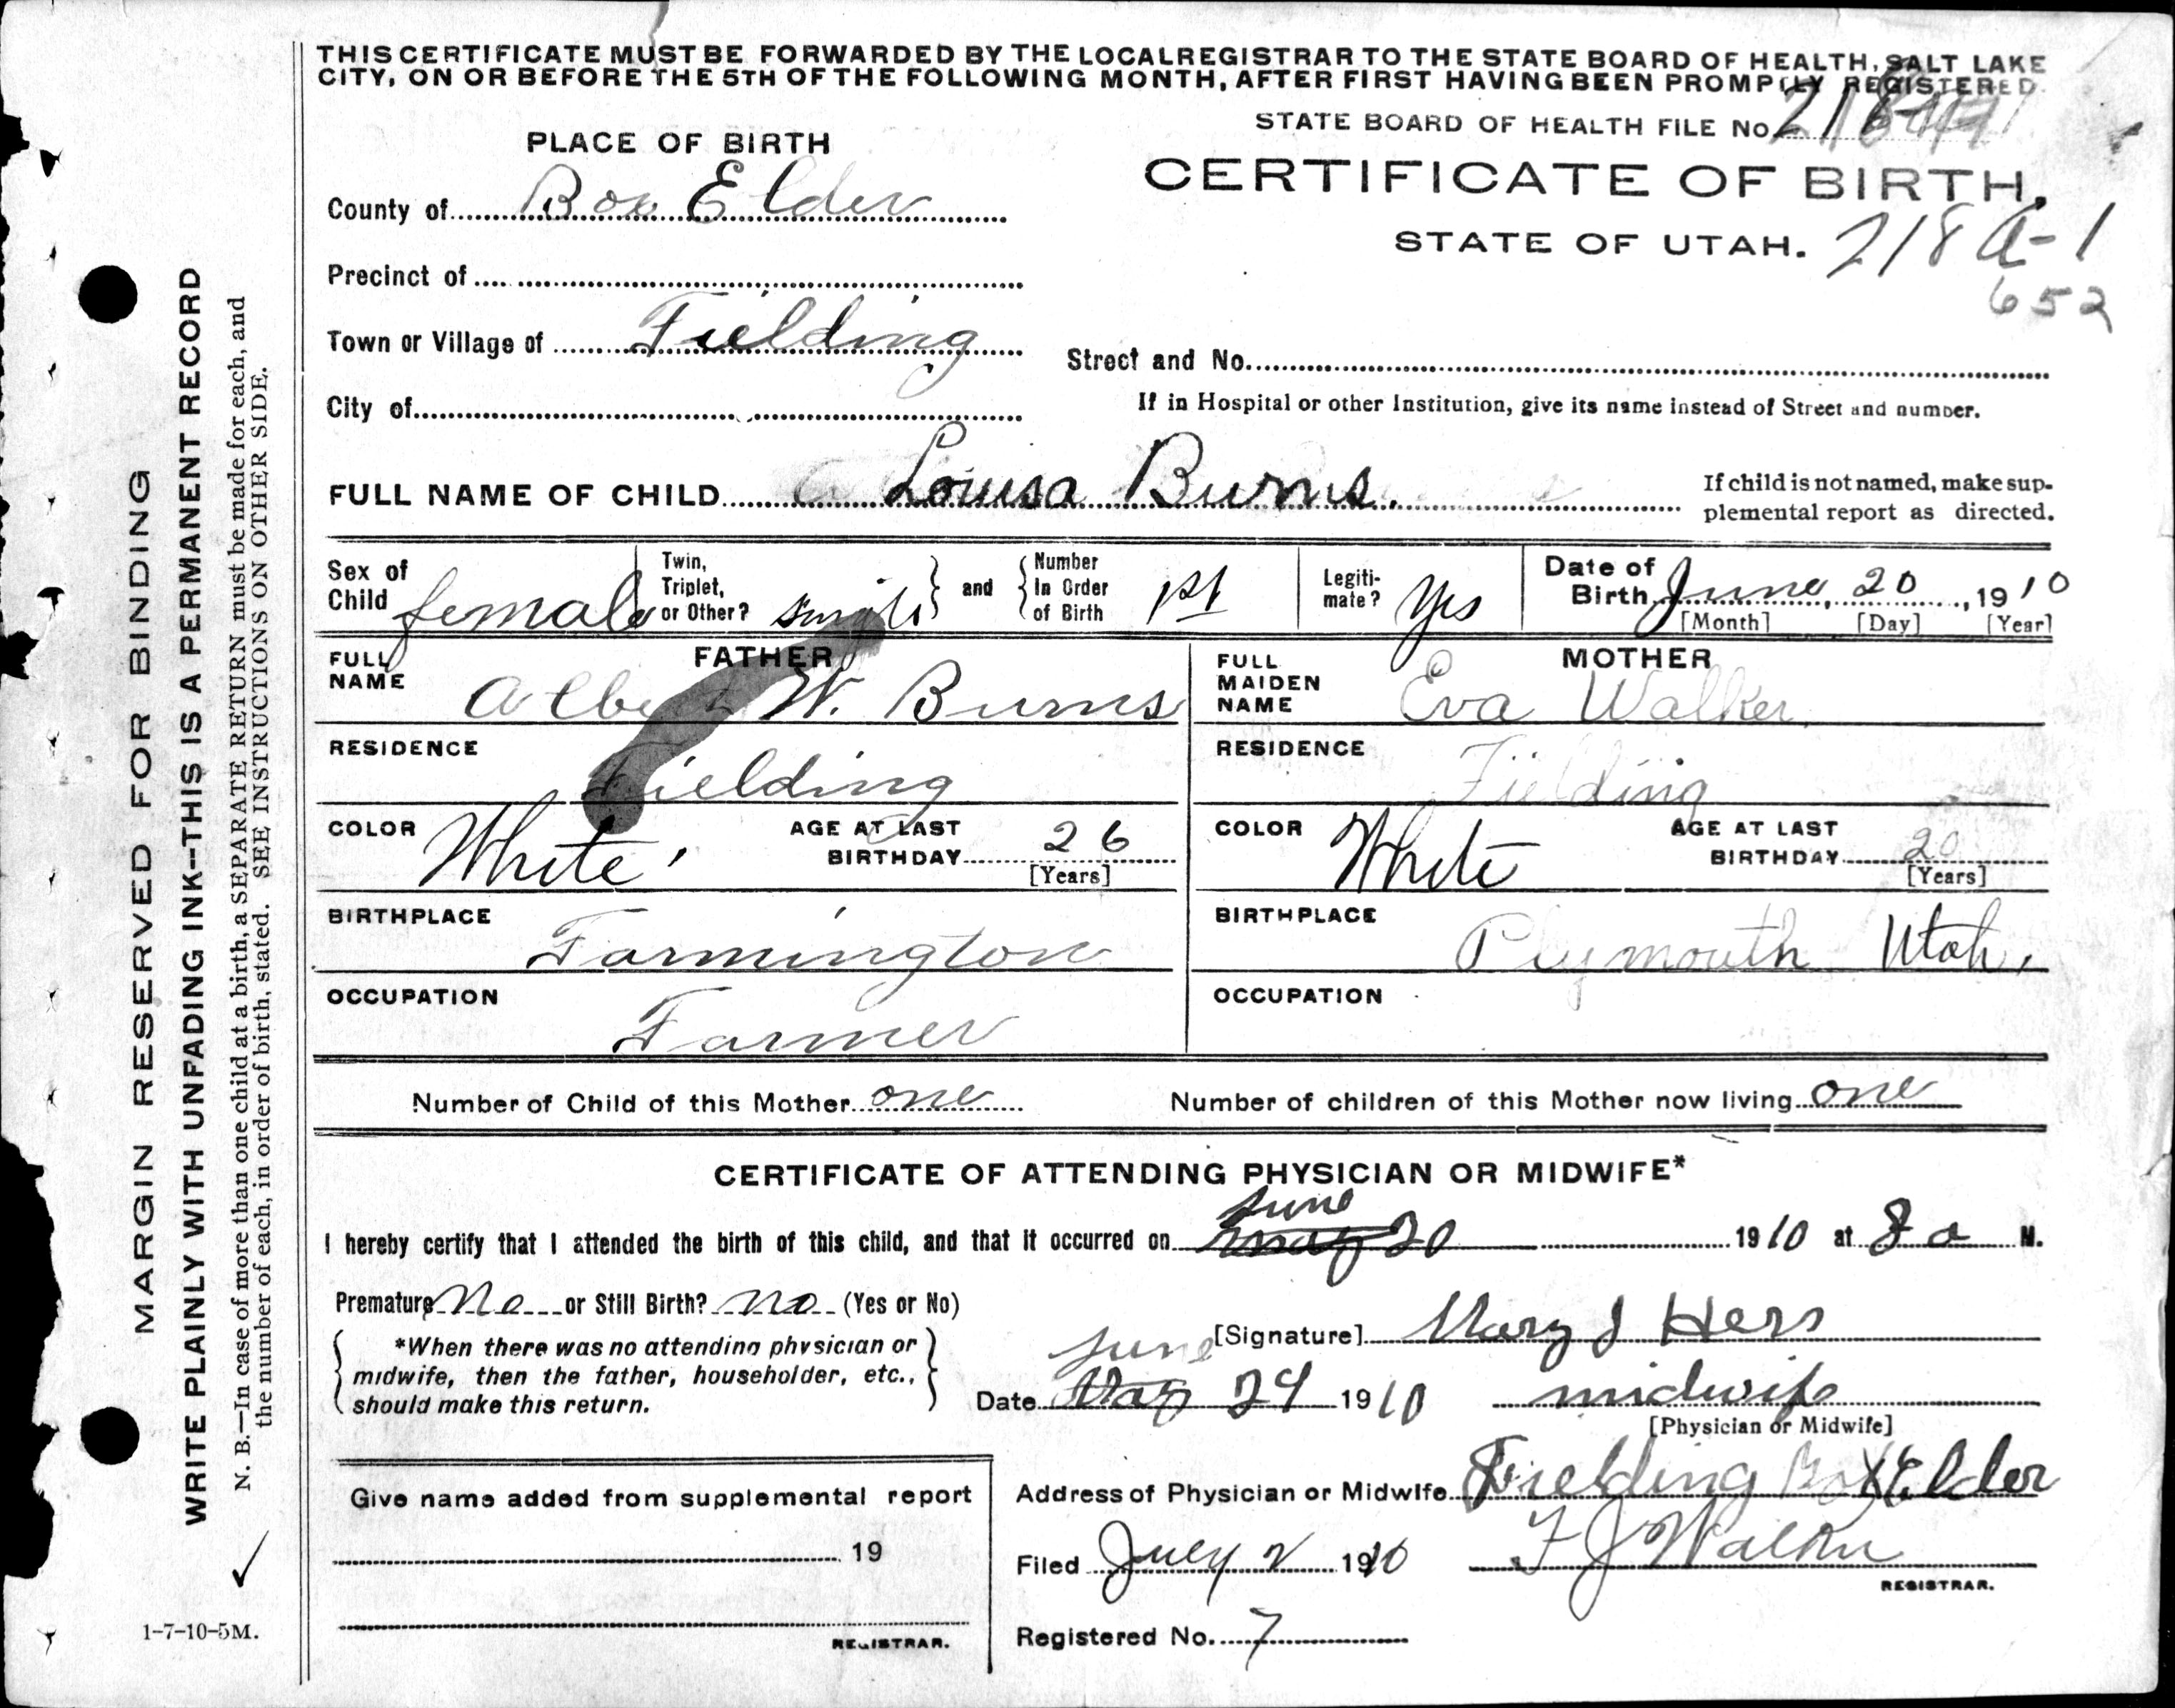 THIS CERTIFICATE MUST BE FORWARDED BY THE LOCAL REGISTRAR TO THE STATE BOARD OF HEALTH, SALT LAKE
CITY, ON OR BEFORE THE 5TH OF THE FOLLOWING MONTH, AFTER FIRST HAVING BEEN PROMPTLY REGISTERED.
STATE BOARD OF HEALTH FILE No.
PLACE OF BIRTH
CERTIFICATE OF BIRTH.
County of Box Elder
STATE OF UTAH. 218 a-1
652
Precinct of
Town or Village of Fielding
Street and No.
City of
If in Hospital or other Institution, give its name instead of Street and number.
FULL NAME OF CHILD Louisa Burns.
If child is not named, make sup-
plemental report as directed.
Sex of Child female
Twin, Triplet, or Other? single
and Number In Order of Birth 1st
Legiti-mate? Yes
Date of Birth June 20, 1910
[Month] [Day] [Year]
FATHER
FULL NAME Albert W. Burns
RESIDENCE Fielding
COLOR White
AGE AT LAST BIRTHDAY 26
[Years]
BIRTHPLACE Farmington
OCCUPATION Farmer
MOTHER
FULL MAIDEN NAME Eva Walker
RESIDENCE Fielding
COLOR White
AGE AT LAST BIRTHDAY 20
[Years]
BIRTHPLACE Plymouth Utah.
OCCUPATION
Number of Child of this Mother one
Number of children of this Mother now living one
CERTIFICATE OF ATTENDING PHYSICIAN OR MIDWIFE*
June
I hereby certify that I attended the birth of this child, and that it occurred on may 20 1910 at 8 a M.
Premature No or Still Birth? no (Yes or No)
*When there was no attending physician or
midwife, then the father, householder, etc.,
should make this return.
[Signature] Mary J Hess
June
Date May 24 1910
midwife
[Physician or Midwife]
Address of Physician or Midwife Fielding Box Elder
Filed July 2 1910
F J Walker
REGISTRAR.
Registered No. 7
Give name added from supplemental report
19
REGISTRAR.
MARGIN RESERVED FOR BINDING
WRITE PLAINLY WITH UNFADING INK--THIS IS A PERMANENT RECORD
N. B.—In case of more than one child at a birth, a SEPARATE RETURN must be made for each, and
the number of each, in order of birth, stated. SEE INSTRUCTIONS ON OTHER SIDE.
1-7-10-5M.